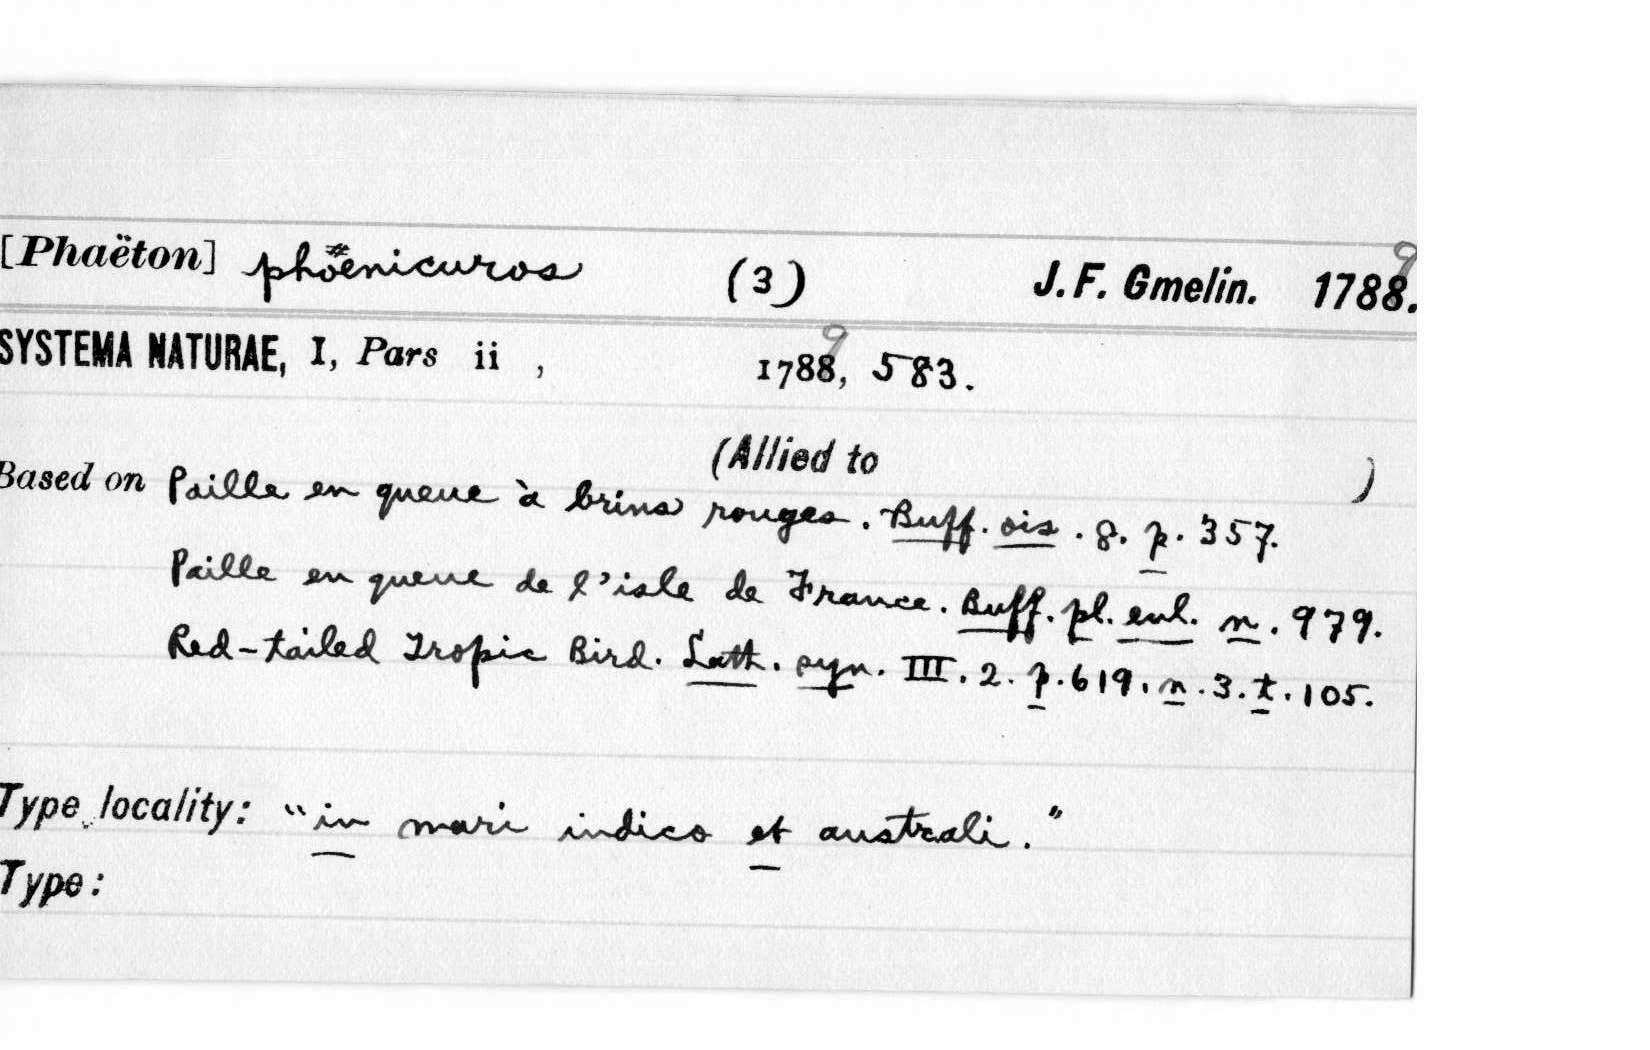 [Phaëton] phœnicuros (3) J. F. Gmelin. 1788. 9
SYSTEMA NATURAE, I, Pars ii , 1788, 9 583.
(Allied to )
Based on Paille en queue à brins rouges. Buff. ois. 8. p. 357.
Paille en queue de l'isle de France. Buff. pl. enl. n. 979.
Red-tailed Tropic Bird. Lath. syn. III. 2. p. 619. n. 3. t. 105.
Type locality: "in mari indico et australi."
Type: